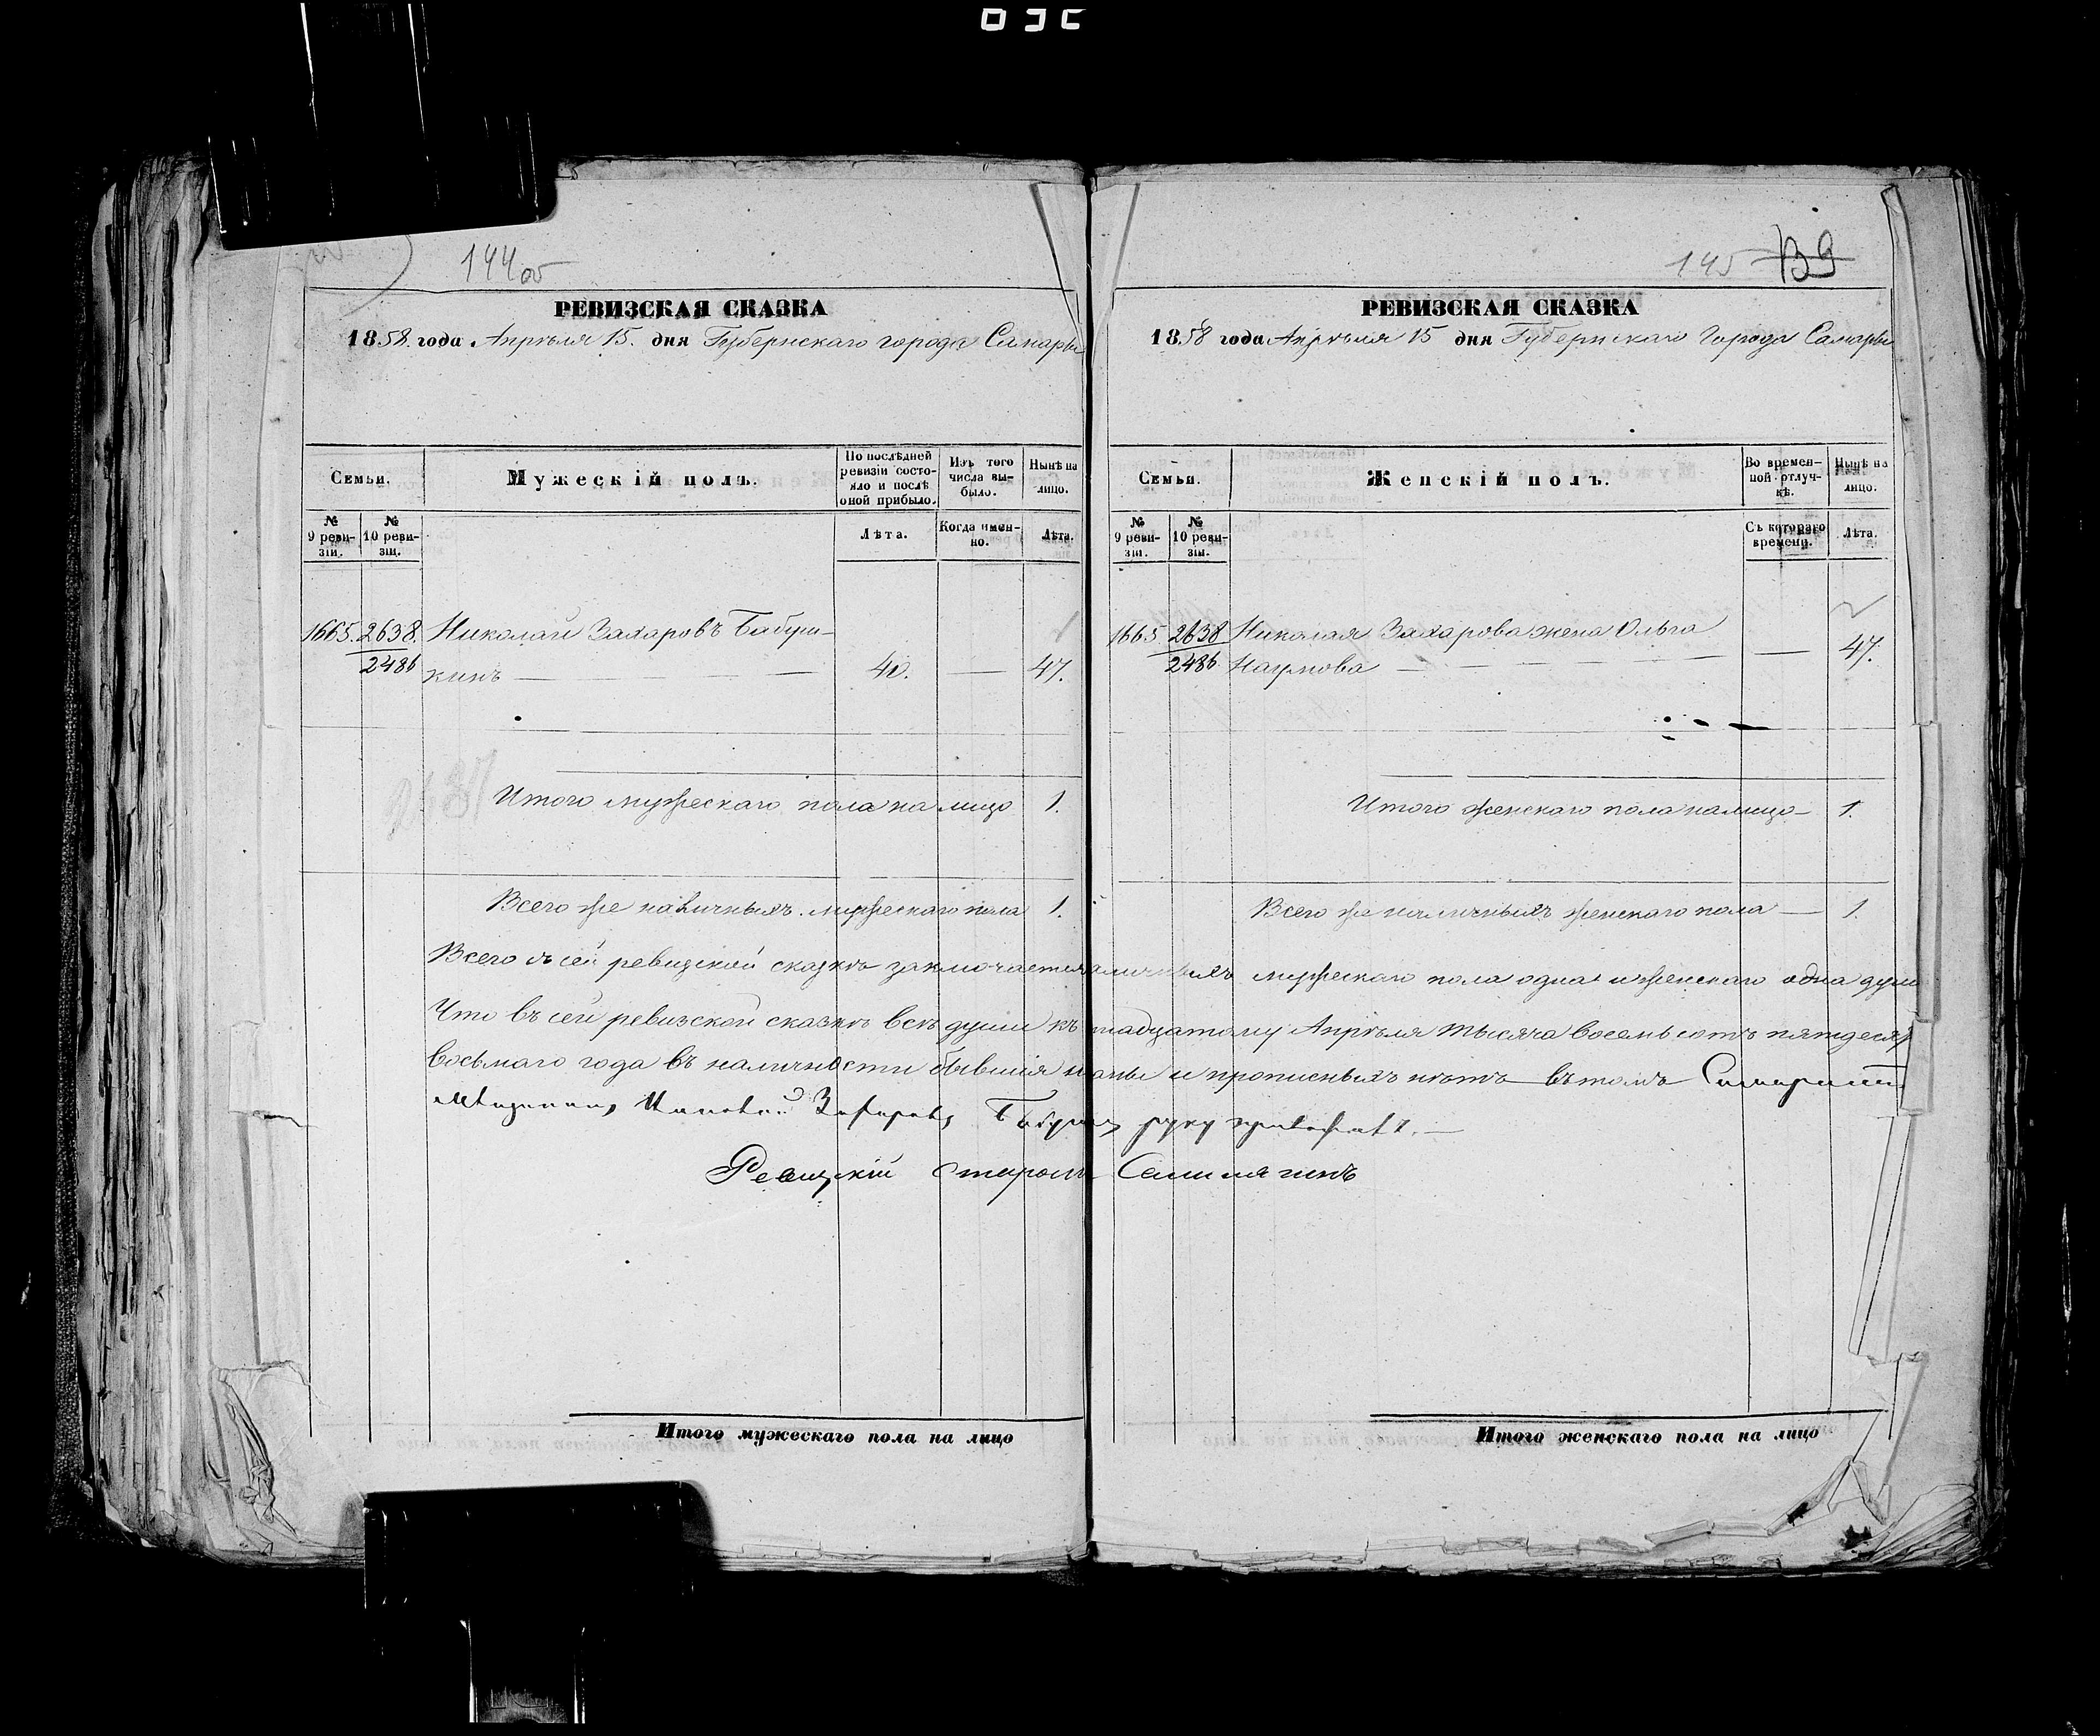 144об
РЕВИЗСКАЯ СКАЗКА
1858. года Апрѣля 15. дня Губернскаго города Самары
Семьи.
Мужескій полъ.
По послѣдней ревизіи состояло и послѣ оной прибыло.
Изъ того числа выбыло.
Нынѣ на лицо.
№ 9 ревизіи.
№ 10 ревизіи.
Лѣта.
Когда именно.
Лѣта.
1665. 2638. Николай Захаровъ Бабуш-
2486 кинъ — 40. — 47.
Итого мужескаго пола на лицо 1.
Всего же наличныхъ мужескаго пола 1.
145 139
РЕВИЗСКАЯ СКАЗКА
1858 года Апрѣля 15 дня Губернскаго Города Самары
Семьи.
Женскій полъ.
Во временной отлучкѣ.
Нынѣ на лицо.
№ 9 ревизіи.
№ 10 ревизіи.
Съ котораго времени.
Лѣта.
1665 2638 Николая Захарова жена Ольга
2486 Наумова — — 47.
Итого женскаго пола налицо — 1.
Всего же наличныхъ женскаго пола — 1.
Всего въ сей ревизской сказкѣ заключается наличныхъ мужескаго пола одна и женскаго одна душа
Что въ сей ревизской сказкѣ всѣ души къ Апрѣля тысяча восемьсотъ пятдесят
восьмаго года въ наличности бывшія и прописныхъ нѣтъ въ томъ
Мѣщанинъ Николай Захаровъ руку приложилъ. —
Ревизскій Старо
Итого мужескаго пола на лицо
Итого женскаго пола на лицо